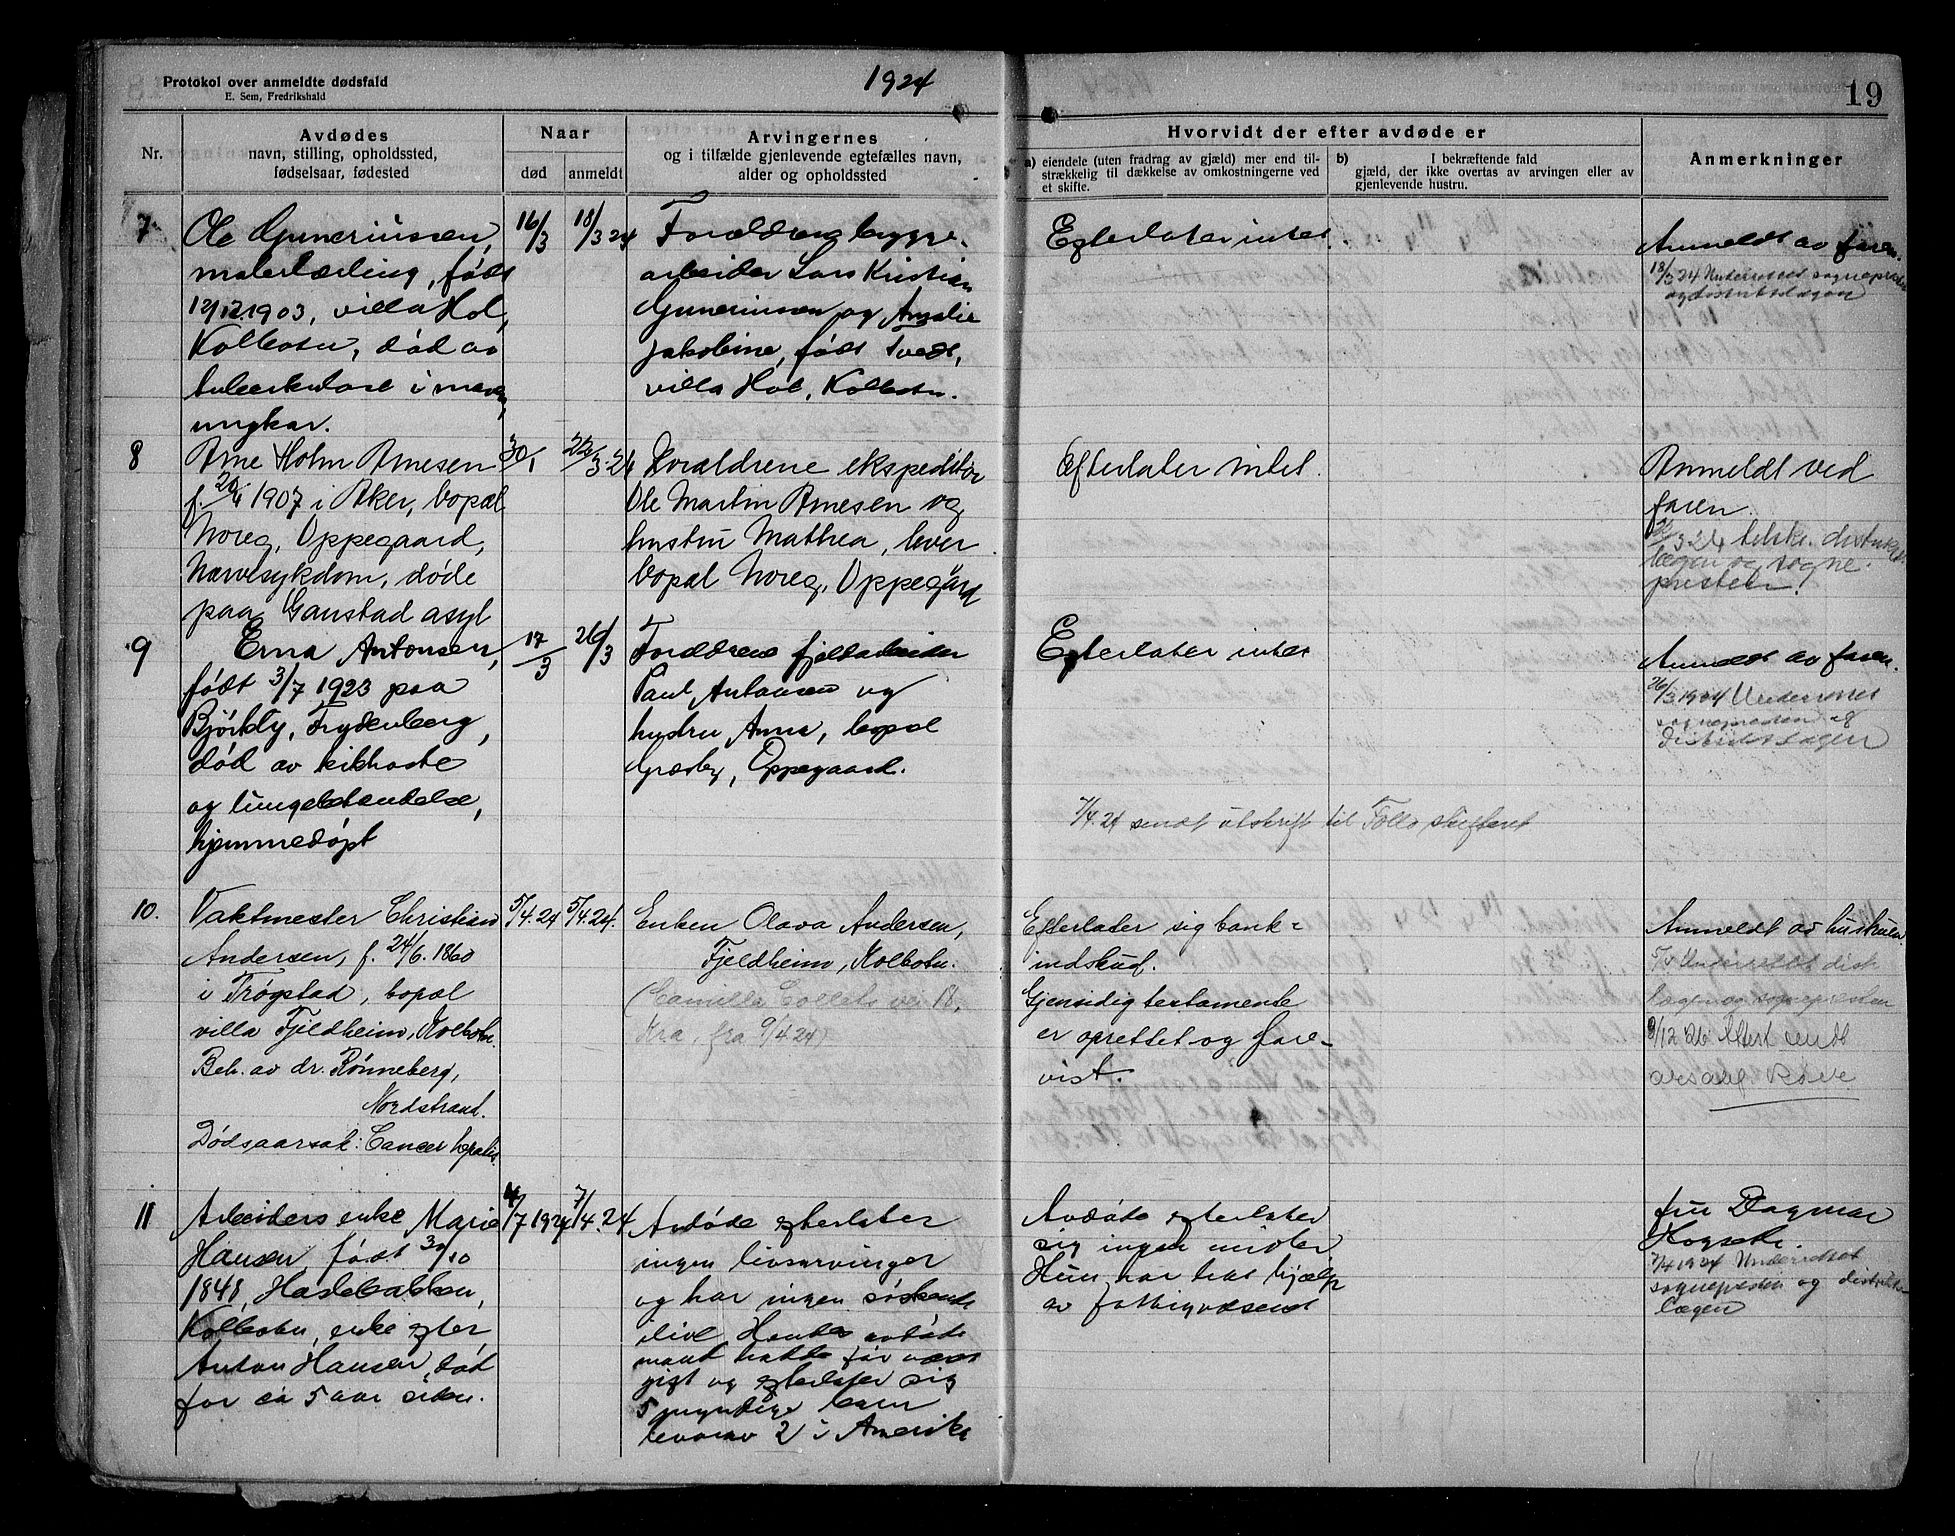 Protokol over anmeldte dødsfald
E. Sem, Fredrikshald
1924
19
Nr.
Avdødes
navn, stilling, opholdssted,
fødselsaar, fødested
Naar
død
anmeldt
Arvingernes
og i tilfælde gjenlevende egtefælles navn,
alder og opholdssted
Hvorvidt der efter avdøde er
a) eiendele (uten fradrag av gjæld) mer end til-
strækkelig til dækkelse av omkostningerne ved
et skifte.
b) I bekræftende fald
gjæld, der ikke overtas av arvingen eller av
gjenlevende hustru.
Anmerkninger
7
Ole Guneriussen,
malerlærling, født
12/12.1903, villa Hol,
Kolbotn, død av
tuberkulose i
ungkar.
16/3
18/3 24
Forældrene bygge-
arbeider Lars Kristian
Guneriussen og Amalie
Jakobine, født Tvedt,
villa Hol, Kolbotn.
Efterlater intet
Anmeldt av faren.
18/3 24 Underrettet sogneprest
og distriktslægen
8
Arne Holm Arnesen
f. 20/4 1907 i Aker, bopæl
Noreg, Oppegaard,
Nervesykdom, døde
paa Gaustad asyl
30/1
22/3.24
Forældrene ekspeditør
Ole Martin Arnesen og
hustru Mathea, lever
bopæl Noreg, Oppegård
Efterlater intet.
Anmeldt ved
faren.
22/3 24 tilskr. distrikts
lægen og sogne-
presten!
9
Erna Antonsen,
født 3/7 1923 paa
Bjørkly, Frydenberg,
død av kikhoste
og lungebetændelse,
hjemmedøpt
17/3
26/3
Forældrene fjeldarbeider
Paul Antonsen og
hustru Anna, bopæl
Græsby, Oppegaard.
Efterlater intet
Anmeldt av faren.
26/3 1924 Underrettet
sognepresten og
Distriktslægen
7/4.24 sendt utskrift til Follo skifteret
10.
Vaktmester Christian
Andersen, f. 24/6. 1860
i Trøgstad, bopæl
villa Fjeldheim, Kolbotn.
Beh. av dr. Rønneberg,
Nordstrand.
Dødsaarsak: Cancer hepatis.
5/4.24
5/4.24.
Enken Olava Andersen,
Fjeldheim, Kolbotn.
(Camilla Colletts vei 18,
Kra, fra 9/4.24)
Efterlater sig bank-
indskud.
Gjensidig testamente
er oprettet og fore-
vist.
Anmeldt av huskuler
5/4 Underrettet dist
lægen og sognepresten
9/12 26 Attest sendt
11
Arbeiders enke Marie
Hansen, født 30/10
1848, Haslebakken,
Kolbotn, enke efter
Anton Hansen, død
for ca 5 aar siden.
4/7 1924
7/4.24
Avdøde efterlater
ingen livsarvinger
og har ingen søskende
ilive Hendes avdøde
mand hadde før været
gift og efterlater sig
5 myndige barn
hvorav 2 i Amerika
Avdøde efterlater
sig ingen midler
Hun har hat hjælp
av fattigvæsenet
fru Dagmar
7/4 1924 Underrettet
sognepresten og distrikts-
lægen